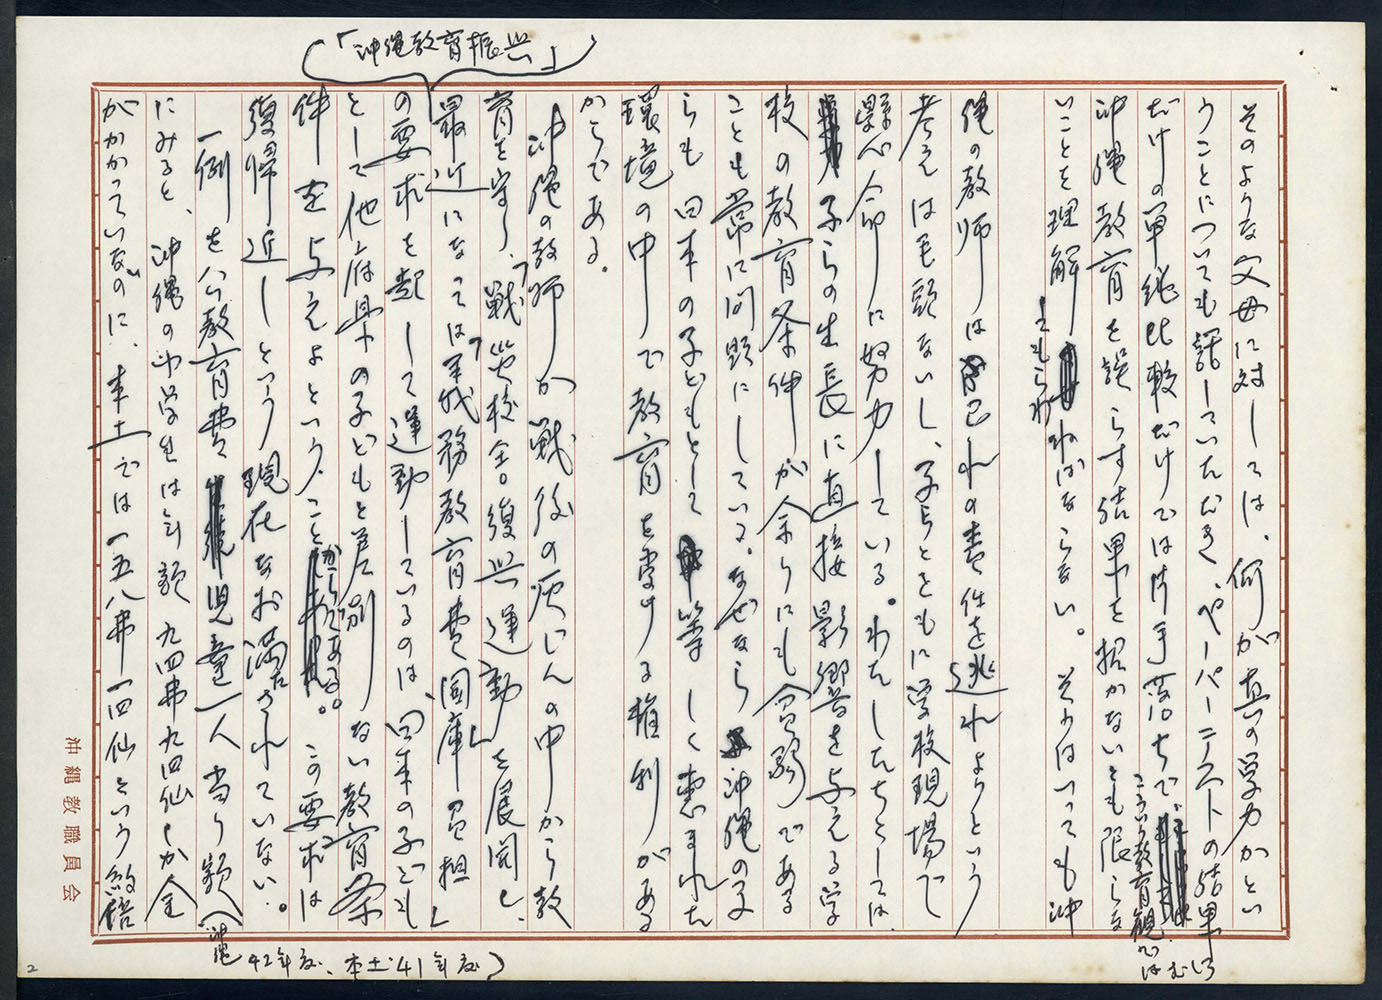 「沖縄教育振興」
そのような父母に対しては、何が真の学力かとい
うことについても話していただき、ペーパーテストの結果
だけの単純比較だけでは片手落ちで、こういう教育観ではむしろ
沖縄教育を誤らす結果を招かないとも限らな
いことを理解してもらわねばならない。そうはいっても沖
縄の教師は己れの責任を逃れようという
考えは毛頭ないし、子らとともに学校現場で
懸命に努力している。わたしたちとしては、
子らの生長に直接影響を与える学
校の教育条件が余りにも貧弱である
ことも常に問題にしている。なぜなら沖縄の子
らも日本の子どもとして等しく恵まれた
環境の中で教育を受ける権利がある
からである。
沖縄の教師が戦後の灰じんの中から教
育を守り、「戦災校舎復興運動」を展開し、
最近になっては「義務教育費国庫負担」
の要求を起して運動しているのは、日本の子ども
として他府県の子どもと差別ない教育条
件を与えよということからである。この要求は
復帰近しという現在なお満たされていない。
一例を公教育費児童一人当り額(沖縄42年度、本土41年度)
にみると、沖縄の小学生は年額九四弗九四仙しか金
がかかっていないのに、本土では一五八弗一四仙という
沖縄教職員会
2